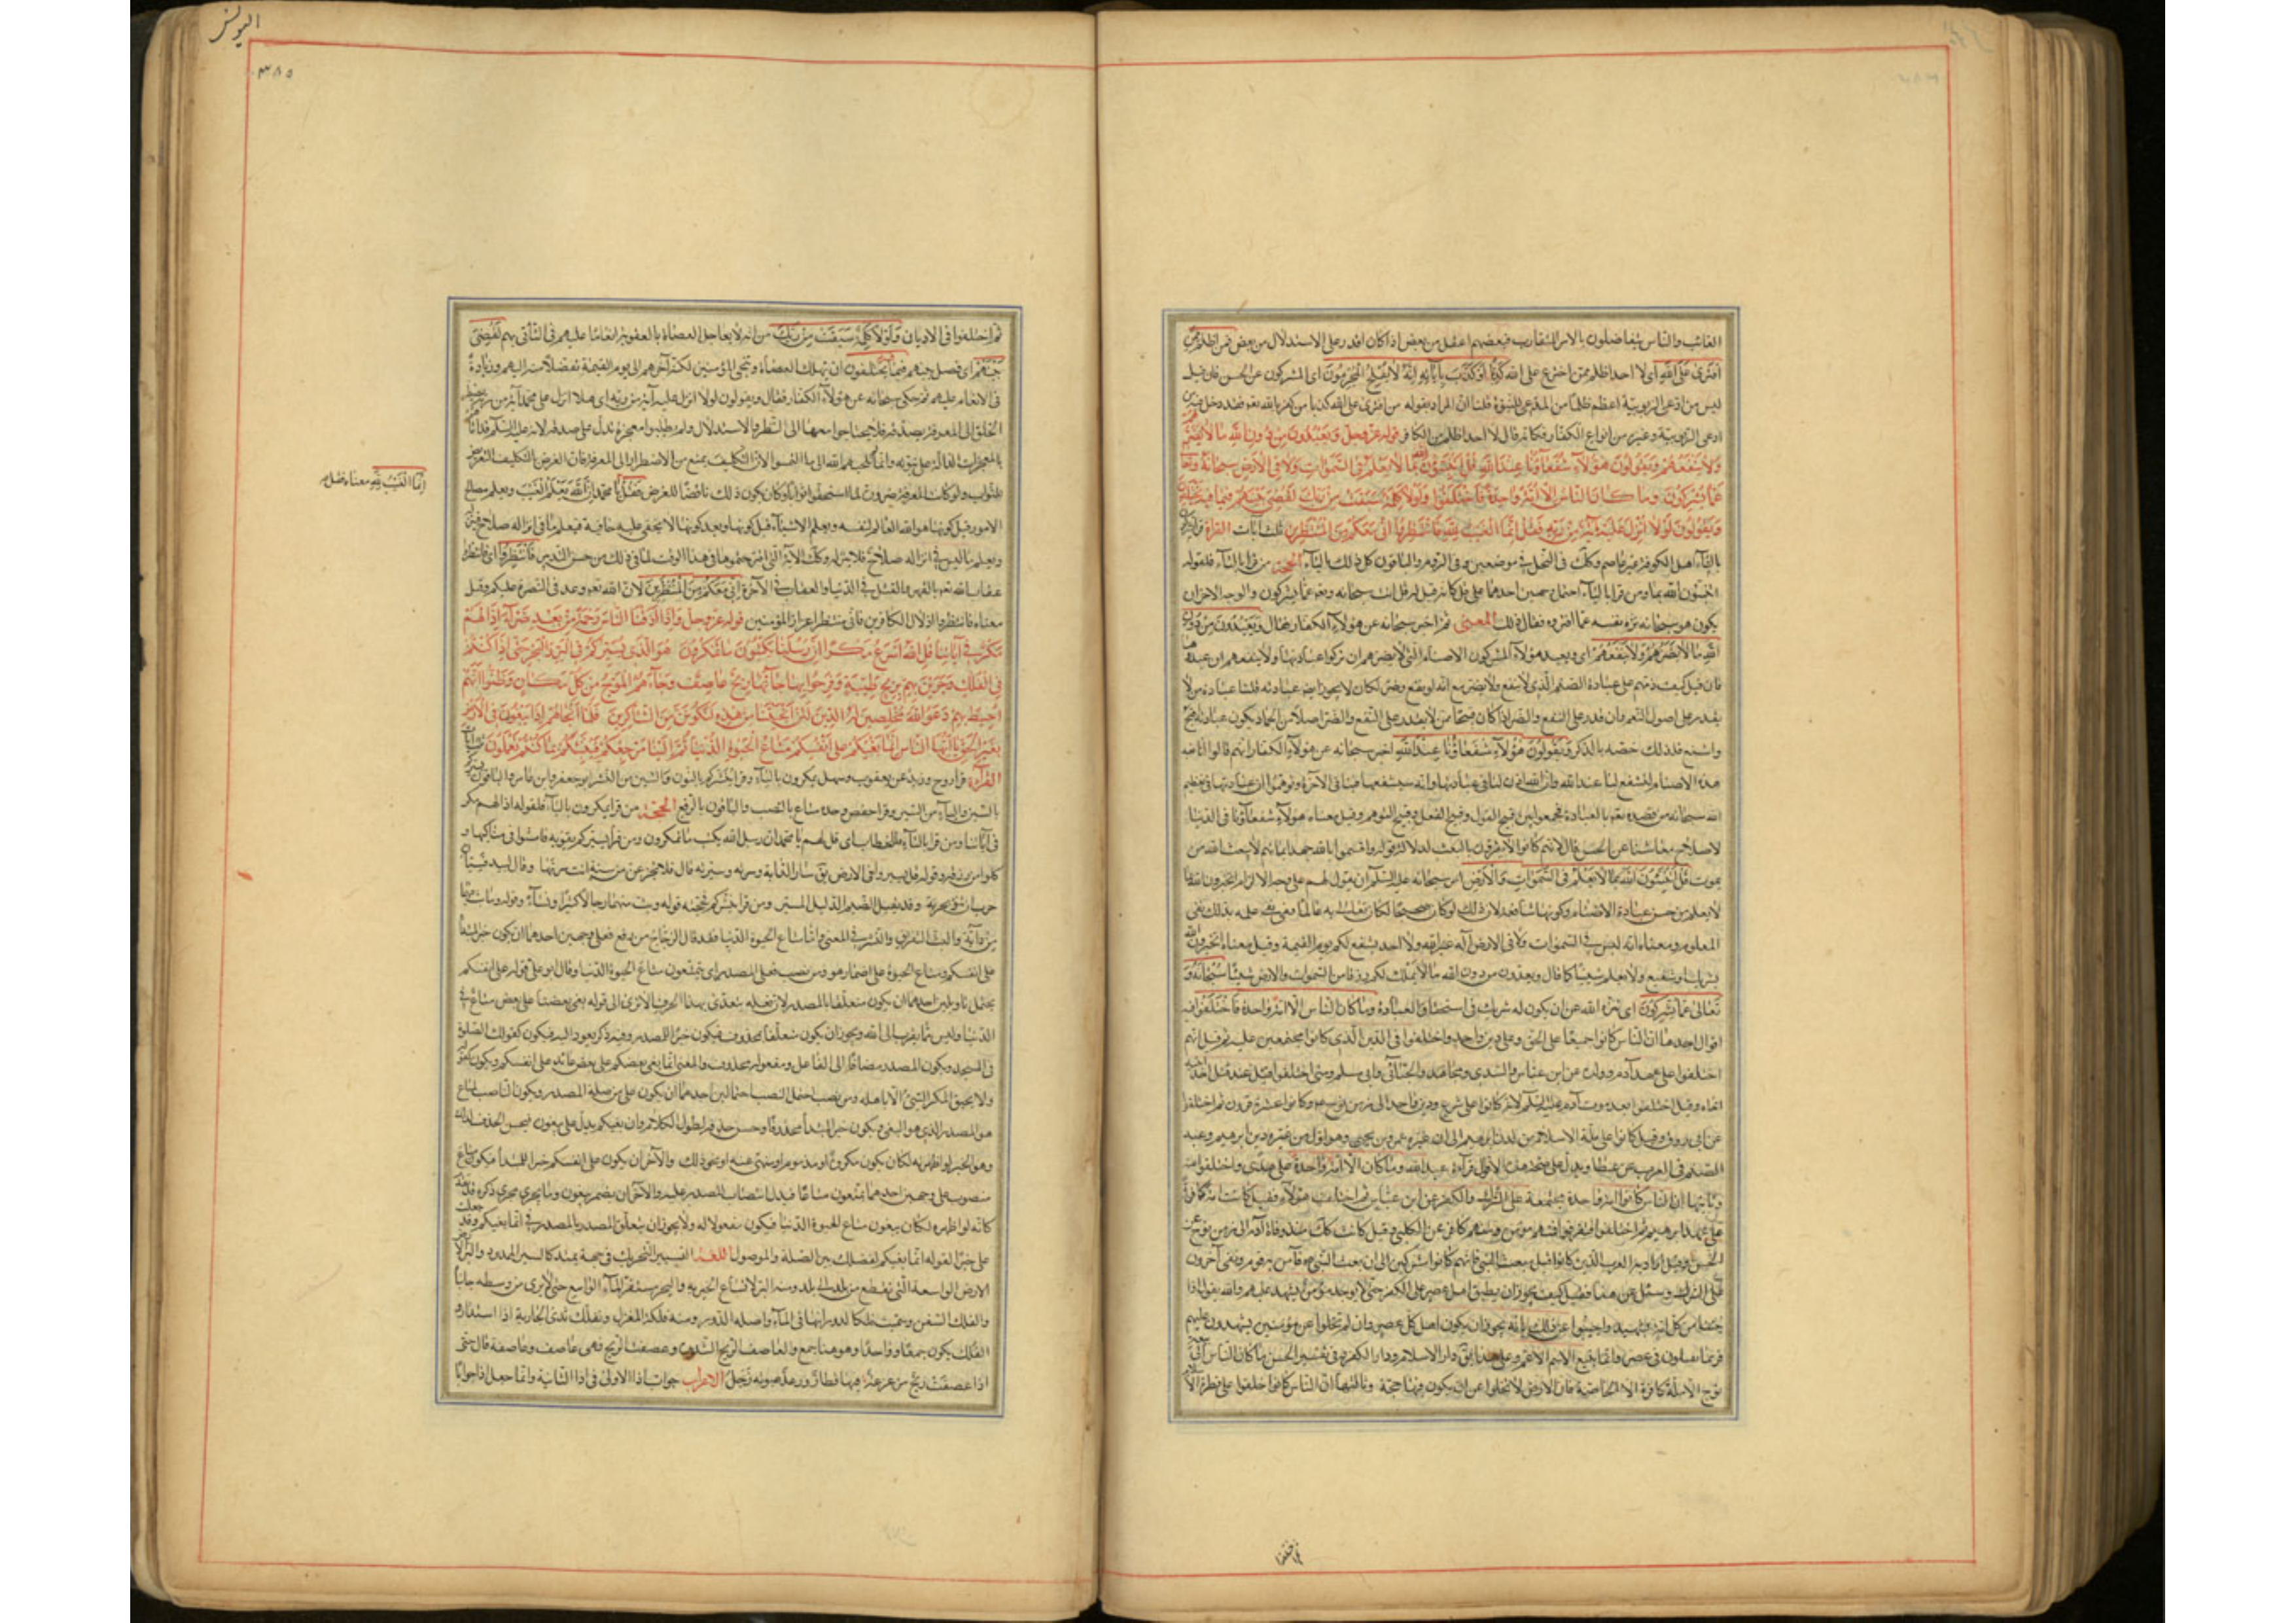 الغائب والناس يتفاضلون بالامر المتقارب فبعضهم اعقل من بعض اذا كان اقدر على الاستدلال من بعض فمن اظلم ممن
افترى على الله اى لا احد اظلم ممن اخترع على الله كذبا او كذب بآياته انه لا يفلح المجرمون اى المشركون عن الحسن فان قيل
ليس من ادعى الربوبية اعظم ظلما من المدعى للنبوة قلنا ان المراد بقوله من افترى على الله كذبا من كفر بالله تعه فقد دخل فيه من
ادعى الربوبية وغيره من انواع الكفار فكانه قال لا احد اظلم من الكافر قوله عز وجل ويعبدون من دون الله ما لا يضرهم
ولا ينفعهم ويقولون هؤلاء شفعاؤنا عند الله قل اتنبؤن الله بما لا يعلم فى السموات ولا فى الارض سبحانه وتعالى
عما يشركون وما كان الناس الا امة واحدة فاختلفوا ولولا كلمة سبقت من ربك لقضى بينهم فيما فيه يختلفون
ويقولون لولا انزل عليه آية من ربه فقل انما الغيب لله فانتظروا انى معكم من المنتظرين ثلث آيات القراءة
بالتاء اهل الكوفة غير عاصم وكذلك فى النحل فى موضعين وفى الروم والباقون كل ذلك بالياء الحجة من قرأ بالتاء فلقوله
اتنبئون الله بما ومن قرأ بالياء احتمل وجهين احدهما على قل كانه قيل له قل انت سبحانه وتعه عما يشركون والوجه الاخر ان
يكون هو سبحانه نزه نفسه عما افتروه فقال ذلك المعنى ثم اخبر سبحانه عن هؤلاء الكفار فقال ويعبدون من دون
الله ما لا يضرهم ولا ينفعهم اى ويعبد هؤلاء المشركون الاصنام التى لا يضرهم ان تركوا عبادتها ولا ينفعهم ان عبدوها
فان قيل كيف ذمهم على عبادة الصنم الذى لا ينفع ولا يضر مع انه لو نفع وضر لكان لا يجوز ايضا عبادته قلنا عبادة من لا
يقدر على اصول النعم وان قدر على النفع والضر اذا كان قبيحا من لا يقدر على النفع والضر اصلا من الجماد يكون عبادته اقبح
واشنع فلذلك خصه بالذكر ويقولون هؤلاء شفعاؤنا عند الله اخبر سبحانه عن هؤلاء الكفار انهم قالوا انا نعبد
هذه الاصنام لتشفع لنا عند الله وان الله اذن لنا فى عبادتها وانه سيشفعها فينا فى الآخرة وتوهموا ان عبادتها تعظيم
الله سبحانه من قصده تعه بالعبادة فجمعوا بين قبيح القول وقبيح الفعل وقبيح التوهم وقيل معناه هؤلاء شفعاؤنا فى الدنيا
لاصلاح معاشنا عن الحسن قال لانهم كانوا لا يقرون بالبعث بدلالة قوله واقسموا بالله جهد ايمانهم لا يبعث الله من
يموت قل اتنبئون الله بما لا يعلم فى السموات ولا فى الارض امر سبحانه نبيه عليه السلم ان يقول لهم على وجه الالزام اتخبرون الله بما
لا يعلم من حسن عبادة الاصنام وكونها شافعة لان ذلك لو كان صحيحا لكان تعالى به عالما ففى نفى علمه بذلك نفى
المعلوم ومعناه انه ليس فى السموات ولا فى الارض آله غير الله ولا احد يشفع لكم يوم القيمة وقيل معناه اتخبرون الله
بشريك او شفيع ولا يعلم شيئا كما قال ويعبدون من دون الله ما لا يملك لهم رزقا من السموات والارض شيئا سبحانه و
تعالى عما يشركون اى تنزه الله عن ان يكون له شريك فى استحقاق العبادة وما كان الناس الا امة واحدة فاختلفوا فيه
اقوال احدها ان الناس كانوا جميعا على الحق وعلى دين واحد واختلفوا فى الدين الذى كانوا مجتمعين عليه ثم قيل انهم
اختلفوا على عهد آدم وولده عن ابن عباس والسدى ومجاهد والجبائى وابى مسلم ومتى اختلفوا قيل عند قتل احد ابنيه
اخاه وقيل اختلفوا بعد موت آدم عليه السلم لانهم كانوا على شرع ودين واحد الى زمن نوح وكانوا عشرة قرون ثم اختلفوا
عن ابى روق وقيل كانوا على ملة الاسلام من لدن ابرهيم الى ان غيره عمرو بن لحى وهو اول من غير دين ابرهيم وعبد
الصنم فى العرب عن عطا ويدل على صحة هذه الاقوال قراءة عبد الله وما كان الا امة واحدة على هدى واختلفوا عنه
وثانيها ان الناس كانوا امة واحدة مجتمعة على الشرك والكفر عن ابن عباس ثم اختلف هؤلاء فقيل كانت امة كافرة
على عهد ابرهيم ثم اختلفوا فتفرقوا فمنهم مؤمن ومنهم كافر عن الكلبى وقيل كانت كذلك منذ وفاة آدم الى زمن نوح عن
الحسن وقيل اراد به العرب الذين كانوا قبل مبعث النبى فانهم كانوا مشركين الى ان بعث النبى فآمن به قوم وبقى آخرون
على الشرك وسئل عن هذا فقيل كيف يجوز ان يطبق اهل عصر على الكفر حتى لا يوجد مؤمن يشهد عليهم والله يقول اذا
جئنا من كل امة بشهيد واجيبوا عن ذلك بانه يجوز ان يكون اهل كل عصر وان لم تخلوا عن مؤمنين يشهدون عليهم
فربما يقلون فى عصر وانما يقع الاسم الاعم وعلى هذا يقال دار الاسلام ودار الكفر وفى تفسير الحسن ما كان الناس الى مبعث
نوح الا ملة كافرة الا الخاصة فان الارض لا تخلوا عن ان يكون فيها حجة وثالثها ان الناس كانوا خلقوا على فطرة الاسلام
فى فقه
اليونس
۳۸۵
ثم اختلفوا فى الاديان ولولا كلمة سبقت من ربك من انه لا يعاجل العصاة بالعقوبة انعاما عليهم فى التأنى بهم لقضى
بينهم اى فصل بينهم فيما فيه يختلفون بان يهلك العصاة وتنجى المؤمنين لكنه آخرهم الى يوم القيمة تفضلا منه اليهم وزيادة
فى الانعام عليهم ثم حكى سبحانه عن هؤلاء الكفار فقال ويقولون لولا انزل عليه آية من ربه اى هلا انزل على محمد آية من ربه يضطر
الخلق الى المعرفة بصدقه فلا يحتاجوا معها الى النظر والاستدلال ولم يطلبوا معجزة تدل على صدقه لانه عليه السلم قد اتاهم
بالمعجزات الدالة على نبوته وانما لم يجبهم الله الى ما التمسوا لان التكليف يمنع من الاضطرار الى المعرفة فان الغرض بالتكليف التعريض
للثواب ولو كانت المعرفة ضرورة لما استحقوا ثوابا وكان يكون ذلك ناقضا للغرض فقل يا محمد ان الله يعلم الغيب ويعلم مصالح
انما الغيب لله معناه فقل
الامور قبل كونها هو الله العالم لنفسه ويعلم الاشياء قبل كونها وبعد كونها لا يخفى عليه خافية فيعلم ما فى انزاله صلاح فينزله
ويعلم ما ليس فى انزاله صلاح فلا ينزله وكذلك الآية التى اقترحتموها فى هذا الوقت لما فى ذلك من حسن التدبير فانتظروا اى فانتظروا
عقاب الله تعه بالقهر والقتل فى الدنيا والعقاب فى الآخرة انى معكم من المنتظرين لان الله تعه وعدنى النصرة عليكم وقيل
معناه فانتظروا اذلال الكافرين فانى منتظر اعزاز المؤمنين قوله عز وجل واذا اذقنا الناس رحمة من بعد ضراء مستهم اذا لهم
مكر فى آياتنا قل الله اسرع مكرا ان رسلنا يكتبون ما تمكرون هو الذى يسيركم فى البر والبحر حتى اذا كنتم
فى الفلك وجرين بهم بريح طيبة وفرحوا بها جاءتها ريح عاصف وجاءهم الموج من كل مكان وظنوا انهم
احيط بهم دعوا الله مخلصين له الدين لئن انجيتنا من هذه لنكونن من الشاكرين فلما انجاهم اذا هم يبغون فى الارض
بغير الحق يا ايها الناس انما بغيكم على انفسكم متاع الحيوة الدنيا ثم الينا مرجعكم فننبئكم بما كنتم تعملون
القراءة قرأ روح وزيد عن يعقوب وسهل يمكرون بالياء وقرأ ينشركم بالنون والشين من النشر ابو جعفر وابن عامر والباقون يسيركم
بالسين والياء من التسيير وقرأ حفص وحده متاع بالنصب والباقون بالرفع الحجة من قرأ يمكرون بالياء فلقوله اذا لهم مكر
فى آياتنا ومن قرأ بالتاء فللخطاب اى قل لهم يا محمد ان رسل الله يكتب ما تمكرون ومن قرأ يسيركم يقويه فامشوا فى مناكبها و
كلوا من رزقه وقوله قل سيروا فى الارض يق سار الدابة وسرته وسيرته قال فلا تجزعن من سنة انت سرتها وقال لبيد
ومن قرأ ينشركم فحجته قوله وبث منهما رجالا كثيرا ونساء وقوله وما بث فيهما
من دابة والبث التفريق والنشر فى المعنى واما متاع الحيوة الدنيا فقد قال الزجاج من رفع فعلى وجهين احدهما ان يكون خبرا لبغيكم
على انفسكم ومتاع الحيوة على اضمار هو ومن نصب فعلى المصدر اى تتمتعون متاع الحيوة الدنيا وقال ابو على قوله على انفسكم
يحتمل تاويلين احدهما ان يكون متعلقا بالمصدر لان فعله يتعدى بهذا الحرف الا ترى الى قوله بغى بعضنا على بعض متاع فى
الدنيا وليس مما يقرب الى الله ويجوز ان يكون متعلقا بمحذوف فيكون خبرا للمصدر وفيه ذكر يعود اليه فيكون كقولك الصلوة
فى المسجد ويكون المصدر مضافا الى الفاعل ومفعوله محذوف والمعنى انما بغى بعضكم على بعض عائد على انفسكم ويكون كقوله
ولا يحيق المكر السيئ الا باهله ومن نصب احتمل النصب احتمالين احدهما ان يكون على من صلة المصدر ويكون الناصب لمتاع
هو المصدر الذى هو البغى ويكون خبر المبتدأ محذوفا وحسن حذفه لطول الكلام ولان بغيكم يدل على يبغون فيحسن الحذف لذلك
وهو الخبر لو اظهرته لكان يكون مكروه او مذموم او منهى عنه او نحو ذلك والآخر ان يكون على انفسكم خبرا للمبتدأ فيكون متاع
منصوب على وجهين احدهما تمتعون متاعا فيدل انتصاب المصدر عليه والآخر ان يضمر يبغون وما يجرى مجرى ذكره قد تقدم
كانه لو اظهره لكان يبغون متاع الحيوة الدنيا فيكون مفعولا له ولا يجوز ان يتعلق المصدر بالمصدر فى انما بغيكم وقد جعلت
على خبرا لقوله انما بغيكم لفصلك بين الصلة والموصول اللغة التسيير التحريك فى جهة يمتد كالسير الممدود والبر
الارض الواسعة التى تقطع من بلد الى بلد ومنه البر لاتساع الخير به والبحر مستقر الماء الواسع حتى لا يرى من وسطه جانبا
والفلك السفن وسميت فلكا لدورانها فى الماء واصله الدور ومنه فلكة المغزل وتفلك ثدى الجارية اذا استدار و
الفلك يكون جمعا وواحدا وهو هنا جمع والعاصف الريح الشديد وعصفت الريح فهى عاصف وعاصفة قال حتى
اذا عصفت ريح مزعزعة فيها قطار ورعد صوته زجل الاعراب جواب اذا الاولى فى اذا الثانية وانما جعل اذا جوابا